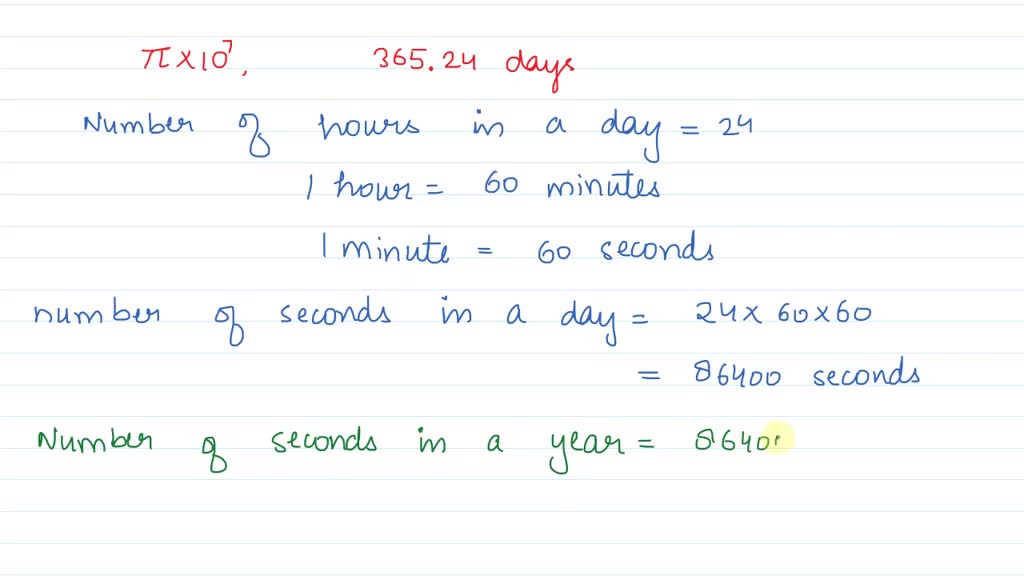 π×10⁷, 365.24 days
Number of hours in a day = 24
1 hour = 60 minutes
1 minute = 60 seconds
number of seconds in a day = 24 × 60 × 60
= 86400 seconds
Number of seconds in a year = 8640